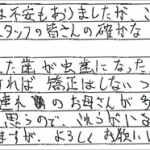 は不安もありましたが こ
スタッフの皆さんの確かな
した歯が虫歯になった
ければ 矯正はしないつ
連れのお母さんが多
思うので、
ますが、よろしくお願いし